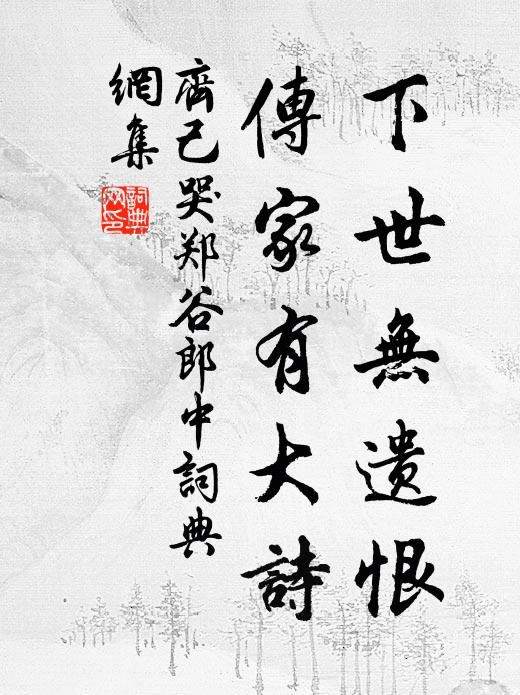 下世無遺恨
傳家有大詩
齊己哭郑谷郎中詞典
網集
詞典
网印